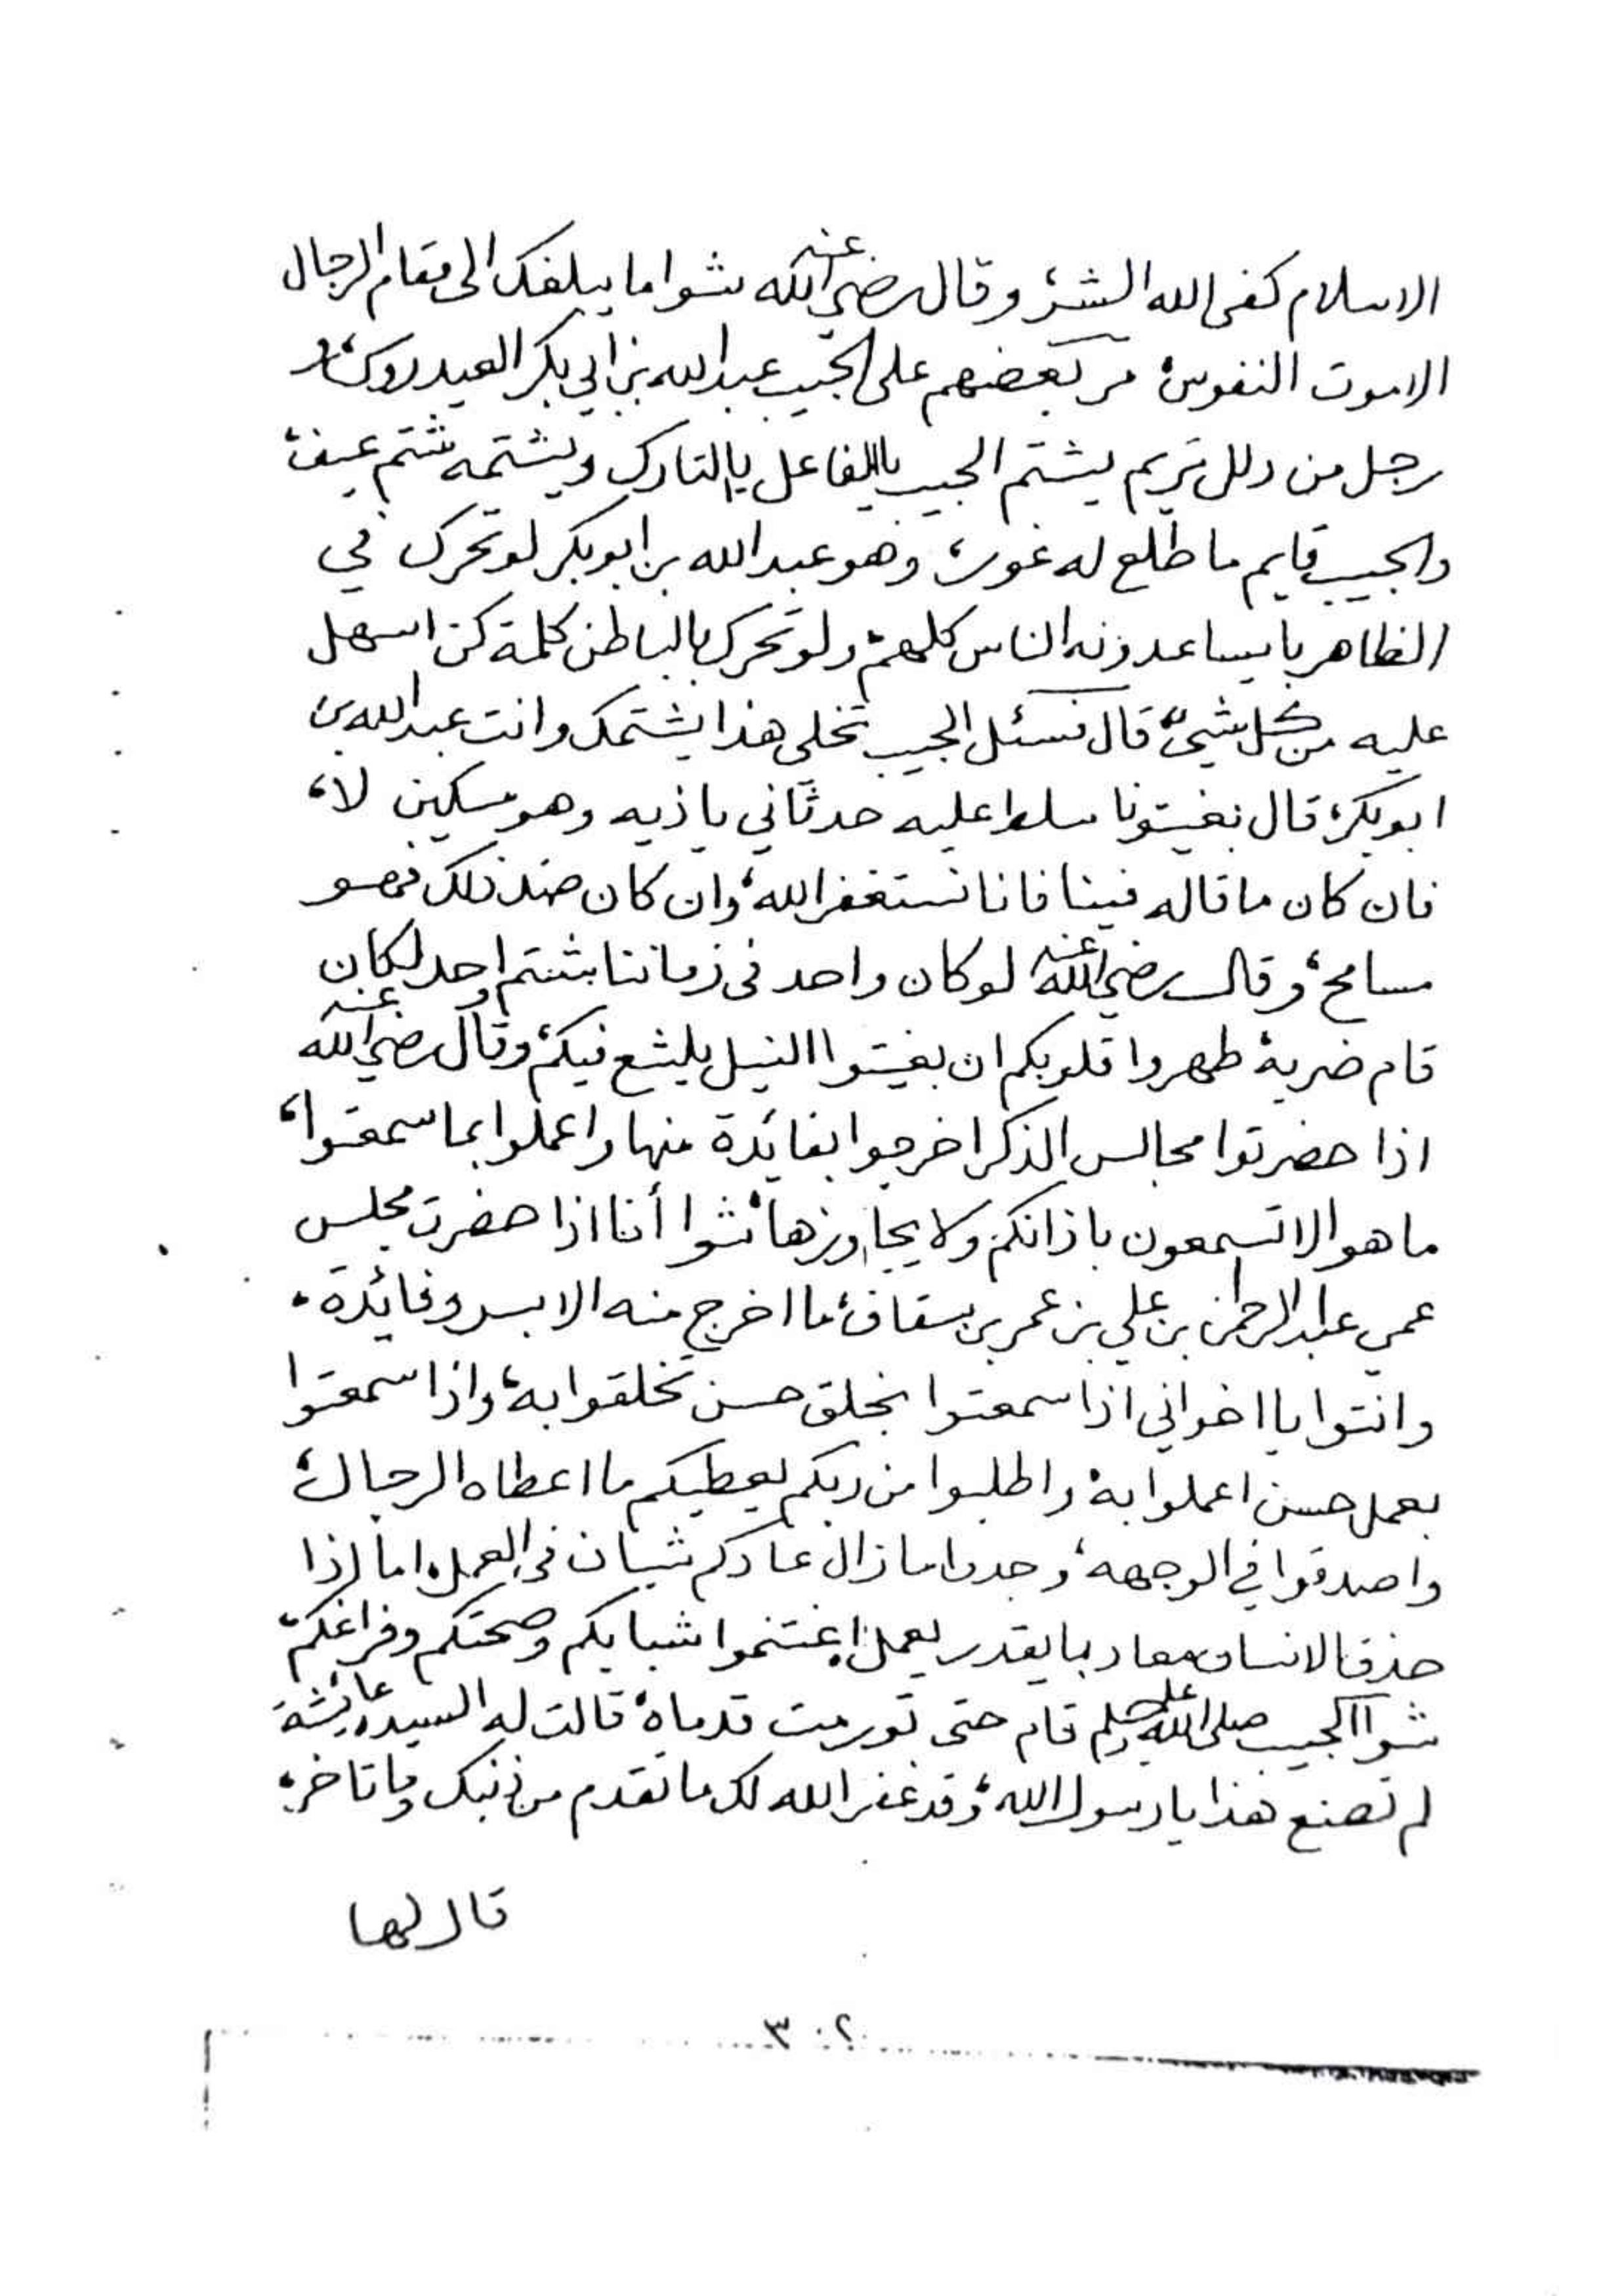 الاسلام كفى الله الشر، وقال رضي الله عنه شوا ما يبلغك الى مقام الرجال
الاموت النفوس، مر بعضهم على الحبيب عبدالله بن ابي بكر العيدروس، و
رجل من دلل تريم يشتم الحبيب يالفاعل يالتارك ويشتمه شتم عنيف،
والحبيب قايم ما طلع له غوب، وهو عبدالله بن ابوبكر لو تحرك في
الظاهر با يساعدونه الناس كلهم، ولو تحرك بالباطن كلمة كن اسهل
عليه من كل شيء، قال فسئل الحبيب تخلي هذا يشتمك وانت عبدالله بن
ابوبكر، قال بغيتونا سلط عليه حدثاني ياذيه وهو مسكين لا،
فان كان ما قاله فينا فانا نستغفر الله، وان كان ضد ذلك فهو
مسامح، وقال رضي الله عنه لو كان واحد في زماننا بشتم احد لكان
قام ضربه، طهروا قلوبكم ان بغيتوا النيل يليثع فيكم، وقال رضي الله عنه
اذا حضرتوا مجالس الذكر اخرجوا بفائدة منها واعملوا بما سمعتوا،
ما هو الا تسمعون باذانكم ولا يجاوزها، شوا أنا اذا حضرت مجلس
عمي عبدالرحمن بن علي بن عمر بن سقاف، ما اخرج منه الا بسر وفائدة،
وانتوا يا اخواني اذا سمعتوا بخلق حسن تخلقوا به، واذا سمعتوا
بعمل حسن اعملوا به، واطلبوا من ربكم يعطيكم ما اعطاه الرجال،
واصدقوا في الوجهه، وجدوا ما زال عادكم شبان في العمل، اما اذا
حذف الانسان معاد با يقدر يعمل، اغتنموا شبابكم وصحتكم وفراغكم،
شوا الحبيب صلى الله عليه وسلم قام حتى تورمت قدماه، قالت له السيده عائشة
لم تصنع هذا يا رسول الله، وقد غفر الله لك ما تقدم من ذنبك وما تاخر،
قال لها
٣٠٢